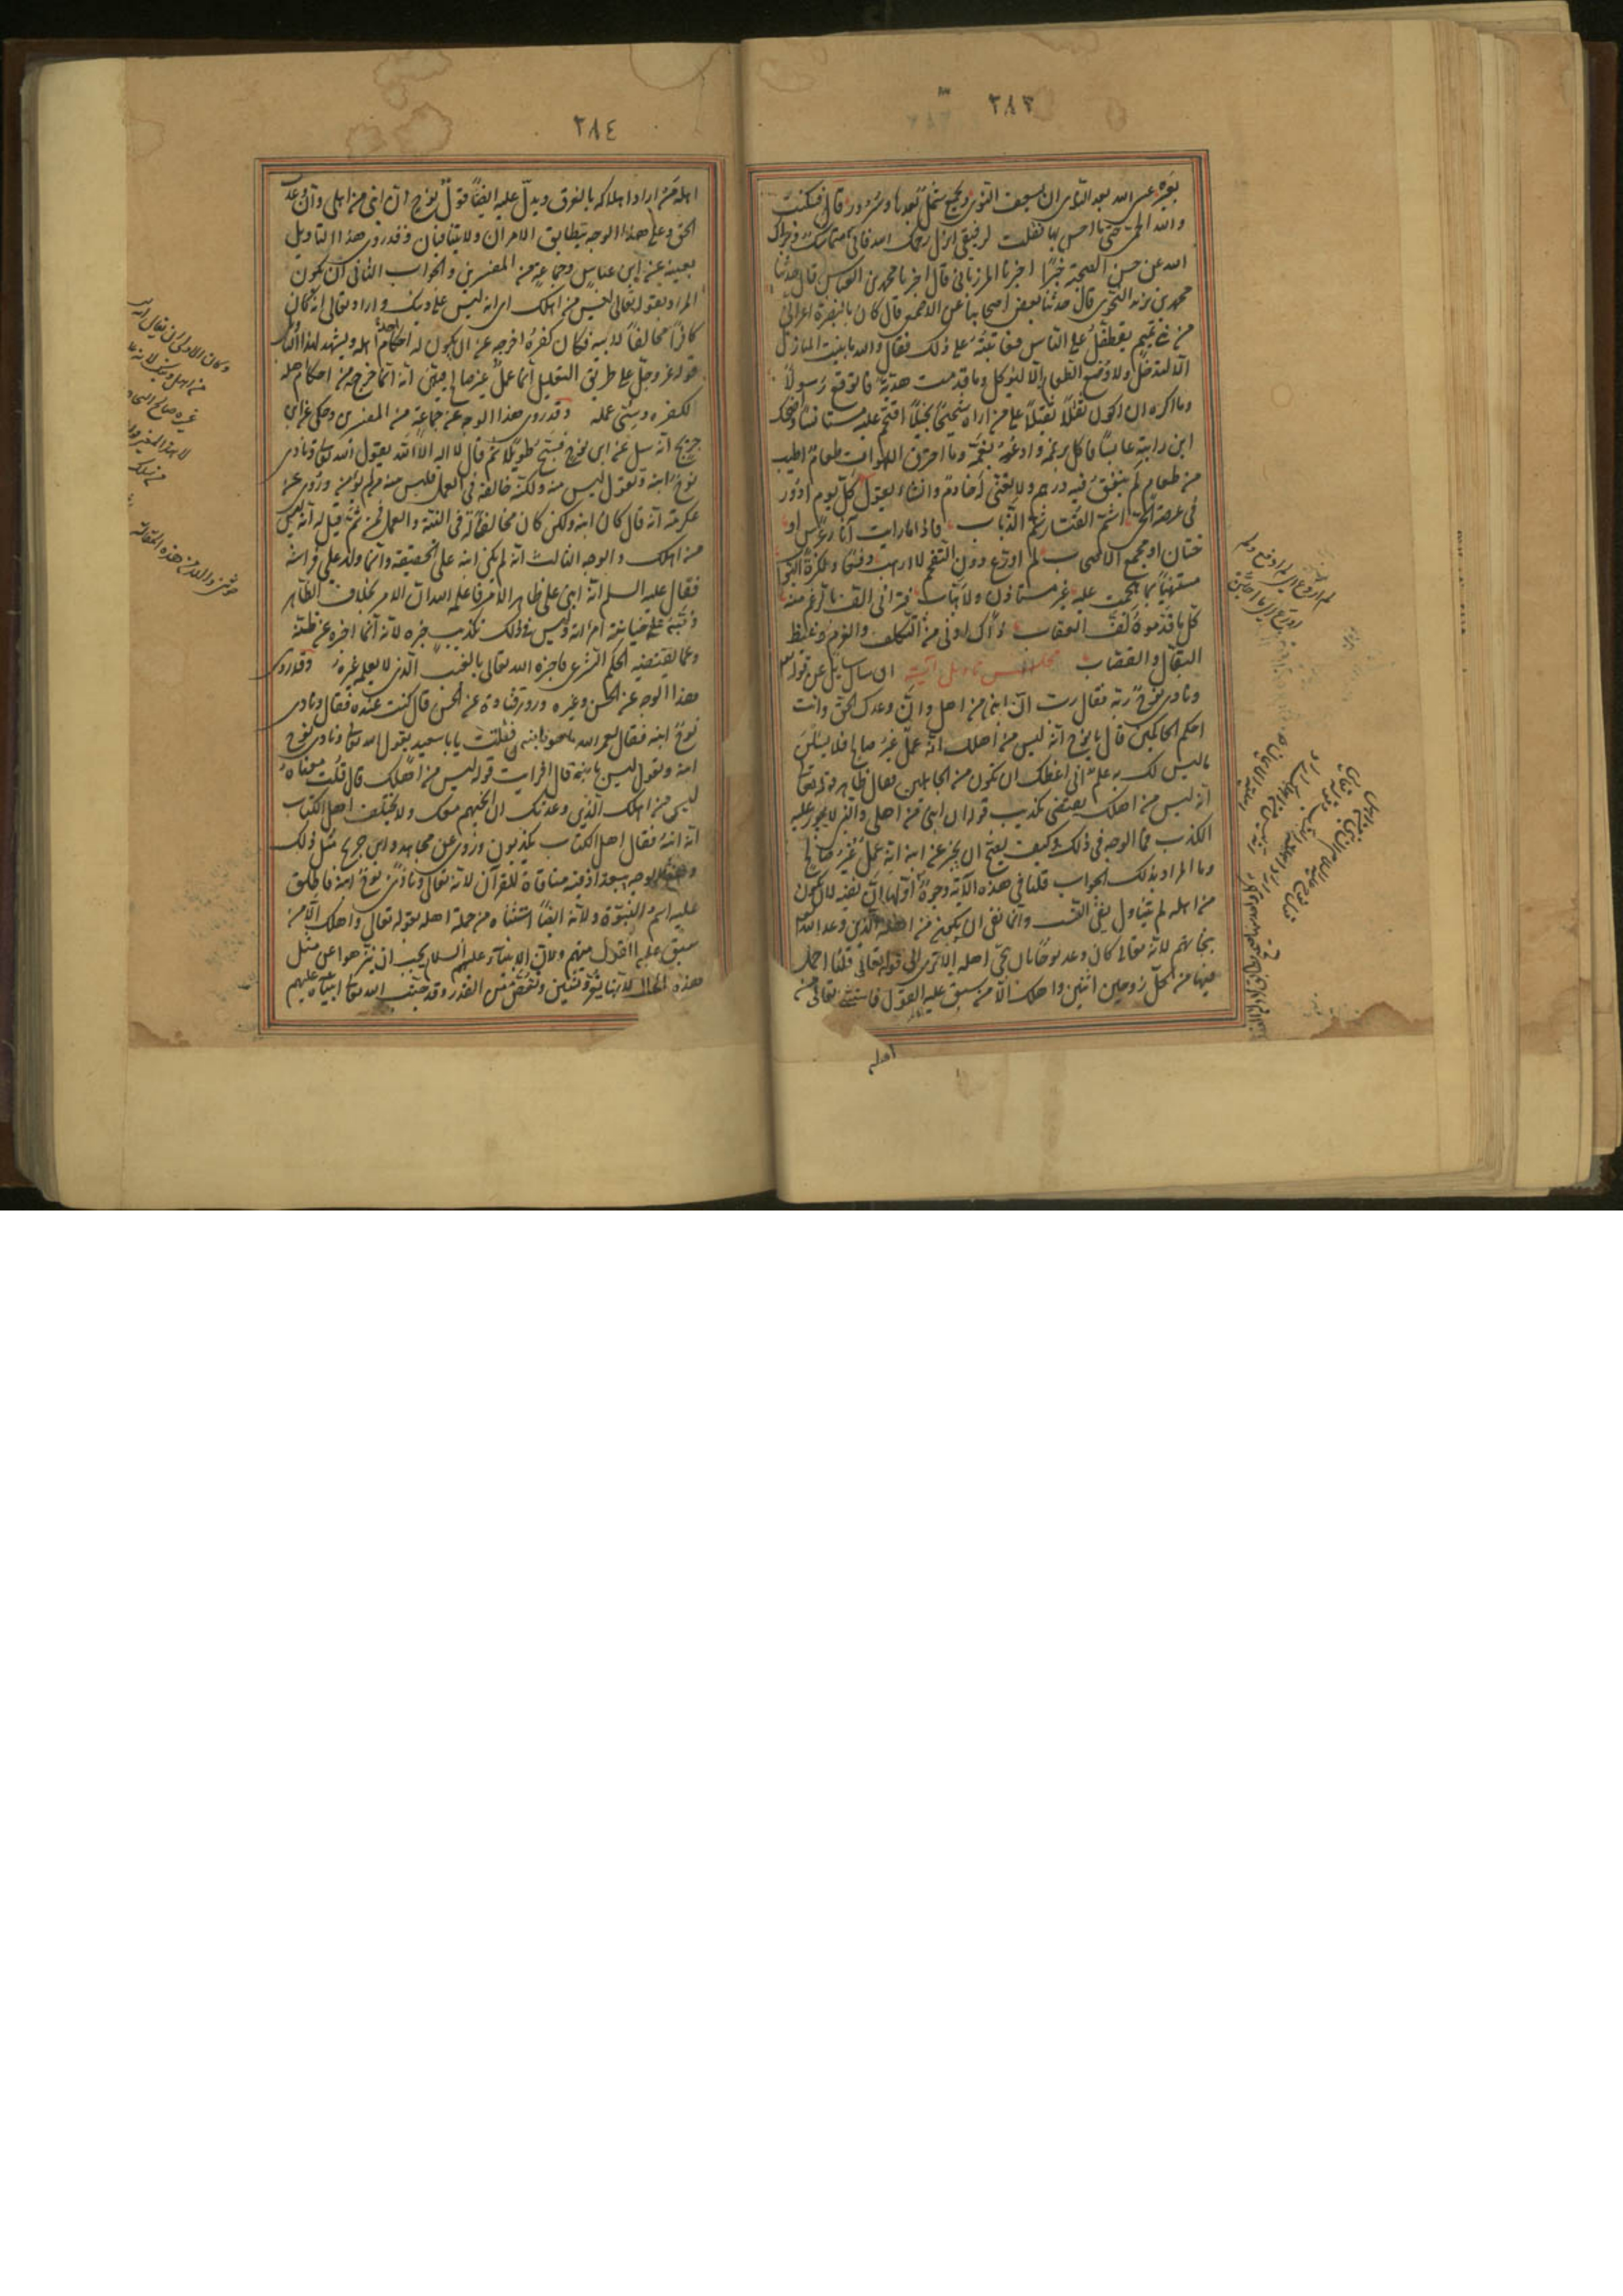 ٢٨٣
والله الحمى حتى ما احس بها فقلت لرفيقي انزل رحمك الله فاني متماسك وجزاك
الله عن حسن الصحبة خيرًا اخبرنا المرزباني قال اخبرنا محمد بن العباس قال حدثنا
محمد بن يزيد النحوي قال حدثنا بعض اصحابنا عن الاصمعي قال كان بالبصرة اعرابي
من بني تميم يتطفل على الناس فعاتبته على ذلك فقال والله ما بنيت المنازل
الا لتدخل ولا وضع الطعام الا ليؤكل وما قدمت هدية فاتوقع رسولا
وما اكره ان اكون ثقلا ثقيلا على من اراه شحيحًا بخيلا اقتحم عليه مستانسًا واضحك
ان رايته عابسًا فاكل برغمه وادعه بغمه وما احترق اللهوات طعام اطيب
من طعام لم ينفق فيه درهم ولا يعنى خادم وانشا يقول كل يوم ادور
في عرصة الحي اشم القتار شم الذباب فاذا ما رايت آثار عرس او
ختان او مجمع الاصحاب لم اروع دون التقحم لا ارهب دفعًا ولكزة البواب
مستهينًا بما هجمت عليه غير مستاذن ولا هياب فتراني الف بالرغم منه
كل ما قدموه لف العقاب ذاك ادنى من التكلف والغرم وغيظ
البقال والقصاب مجلس تاويل آية ان سال سايل عن قوله تعالى
ونادى نوح ربه فقال رب ان ابني من اهلي وان وعدك الحق وانت
احكم الحاكمين قال يا نوح انه ليس من اهلك انه عمل غير صالح فلا تسئلن
ما ليس لك به علم اني اعظك ان تكون من الجاهلين فقال ظاهر قوله تعالى
انه ليس من اهلك يقتضي تكذيب قوله ان ابني من اهلي والنبي لا يجوز عليه
الكذب فما الوجه في ذلك وكيف يصح ان يخبر عن ابنه انه عمل غير صالح
وما المراد بذلك الجواب قلنا في هذه الآية وجوه اولها ان نفيه لان يكون
من اهله لم يتناول نفي النسب وانما نفى ان يكون من اهله الذين وعد الله
بنجاتهم لانه تعالى كان وعد نوحًا بان ينجي اهله الا ترى الى قوله تعالى قلنا احمل
فيها من كل زوجين اثنين واهلك الا من سبق عليه القول فاستثنى تعالى من
اهله
٢٨٤
اهله من اراد اهلاكه بالغرق ويدل عليه ايضًا قول نوح ان ابني من اهلي وان وعدك
الحق وعلى هذا الوجه يتطابق الامران ولا يتنافيان وقد روى هذا التاويل
بعينه عن ابن عباس وجماعة من المفسرين والجواب الثاني ان يكون
المراد بقوله تعالى ليس من اهلك اي انه ليس على دينك واراد تعالى انه كان
كافرًا مخالفًا لابيه فكان كفره اخرجه عن ان يكون له احكام اهله ويشهد لهذا التاويل
قوله عز وجل على طريق التعليل انه عمل غير صالح فبين انه انما خرج من احكام اهله
لكفره وسيئ عمله وقد روى هذا الوجه عن جماعة من المفسرين وحكى عن ابن
جريج انه سئل عن ابن نوح فسبح طويلا ثم قال لا اله الا الله يقول الله تعالى ونادى
نوح ابنه وتقول ليس منه ولكنه خالفه في العمل فليس منه من لم يؤمن وروى عن
عكرمة انه قال كان ابنه ولكن كان مخالفًا له في النية والعمل فمن ثم قيل له انه ليس
من اهلك والوجه الثالث انه لم يكن ابنه على الحقيقة وانما ولد على فراشه
فقال عليه السلم انه ابني على ظاهر الامر فاعلمه الله ان الامر بخلاف الظاهر
ونبه على خيانة امراته وليس في ذلك تكذيب خبره لانه انما اخبر عن ظنه
وعما يقتضيه الحكم الشرعي فاخبره الله تعالى بالغيب الذي لا يعلمه غيره وقد روى
هذا الوجه عن الحسن وغيره وروى قتادة عن الحسن قال كنت عنده فقال ونادى
نوح ابنه فقال لعمر الله ما هو ابنه قال فقلت يا با سعيد يقول الله تعالى ونادى نوح
ابنه وتقول ليس بابنه قال افرايت قوله ليس من اهلك قال قلت معناه
ليس من اهلك الذين وعدتك ان انجيهم معك ولا يختلف اهل الكتاب
انه ابنه فقال اهل الكتاب يكذبون وروى عن مجاهد وابن جريج مثل ذلك
وهذا الوجه يبعد اذ فيه منافاة للقرآن لانه تعالى قال ونادى نوح ابنه فاطلق
عليه اسم البنوة ولانه ايضًا استثناه من جملة اهله بقوله تعالى واهلك الا من
سبق عليه القول منهم ولان الانبياء عليهم السلام يجب ان ينزهوا عن مثل
هذه الحال لانها تعر وتشين وتغض من القدر وقد جنب الله تعالى انبياءه عليهم